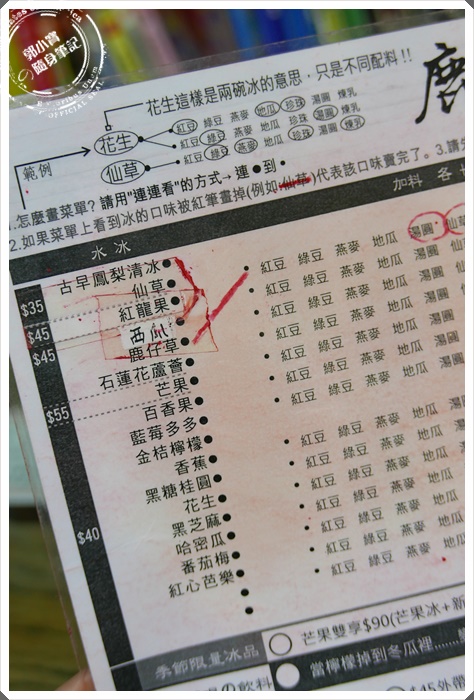 郭小寶
隨身筆記
OFFICIAL SEAL
鹿
花生這樣是兩碗冰的意思,只是不同配料!!
花生
仙草
範例
紅豆 綠豆 燕麥 地瓜 珍珠 湯圓 煉乳
紅豆 綠豆 燕麥 地瓜 珍珠 湯圓 煉乳
紅豆 綠豆 燕麥 地瓜 珍珠 湯圓 煉乳
1.怎麼畫菜單? 請用"連連看"的方式→ 連 ● 到 •
2.如果菜單上看到冰的口味被紅筆畫掉(例如:仙草)代表該口味賣完了。3.請先
水冰
加料 各
古早鳳梨清冰●
仙草●
紅龍果●
西瓜●
鹿仔草●
石蓮花蘆薈●
芒果●
百香果●
藍莓多多●
金桔檸檬●
香蕉●
黑糖桂圓●
花生●
黑芝麻●
哈密瓜●
番茄梅●
紅心芭樂●
$35
$45
$45
$55
$40
• 紅豆 綠豆 燕麥 地瓜 湯圓 仙草
• 紅豆 綠豆 燕麥 地瓜 湯圓 仙草
• 紅豆 綠豆 燕麥 地瓜 湯圓
• 紅豆 綠豆 燕麥 地瓜 湯圓
• 紅豆 綠豆 燕麥 地瓜 湯圓
• 紅豆 綠豆 燕麥 地瓜 湯圓
• 紅豆 綠豆 燕麥 地瓜 湯圓
• 紅豆 綠豆 燕麥 地瓜 湯圓
• 紅豆 綠豆 燕麥 地瓜
• 紅豆 綠豆 燕麥 地瓜
• 紅豆 綠豆 燕麥 地瓜
• 紅豆 綠豆 燕麥 地瓜
季節限量冰品
芒果雙享$90(芒果冰+新
當檸檬掉到冬瓜裡......
の飲料
$45外帶